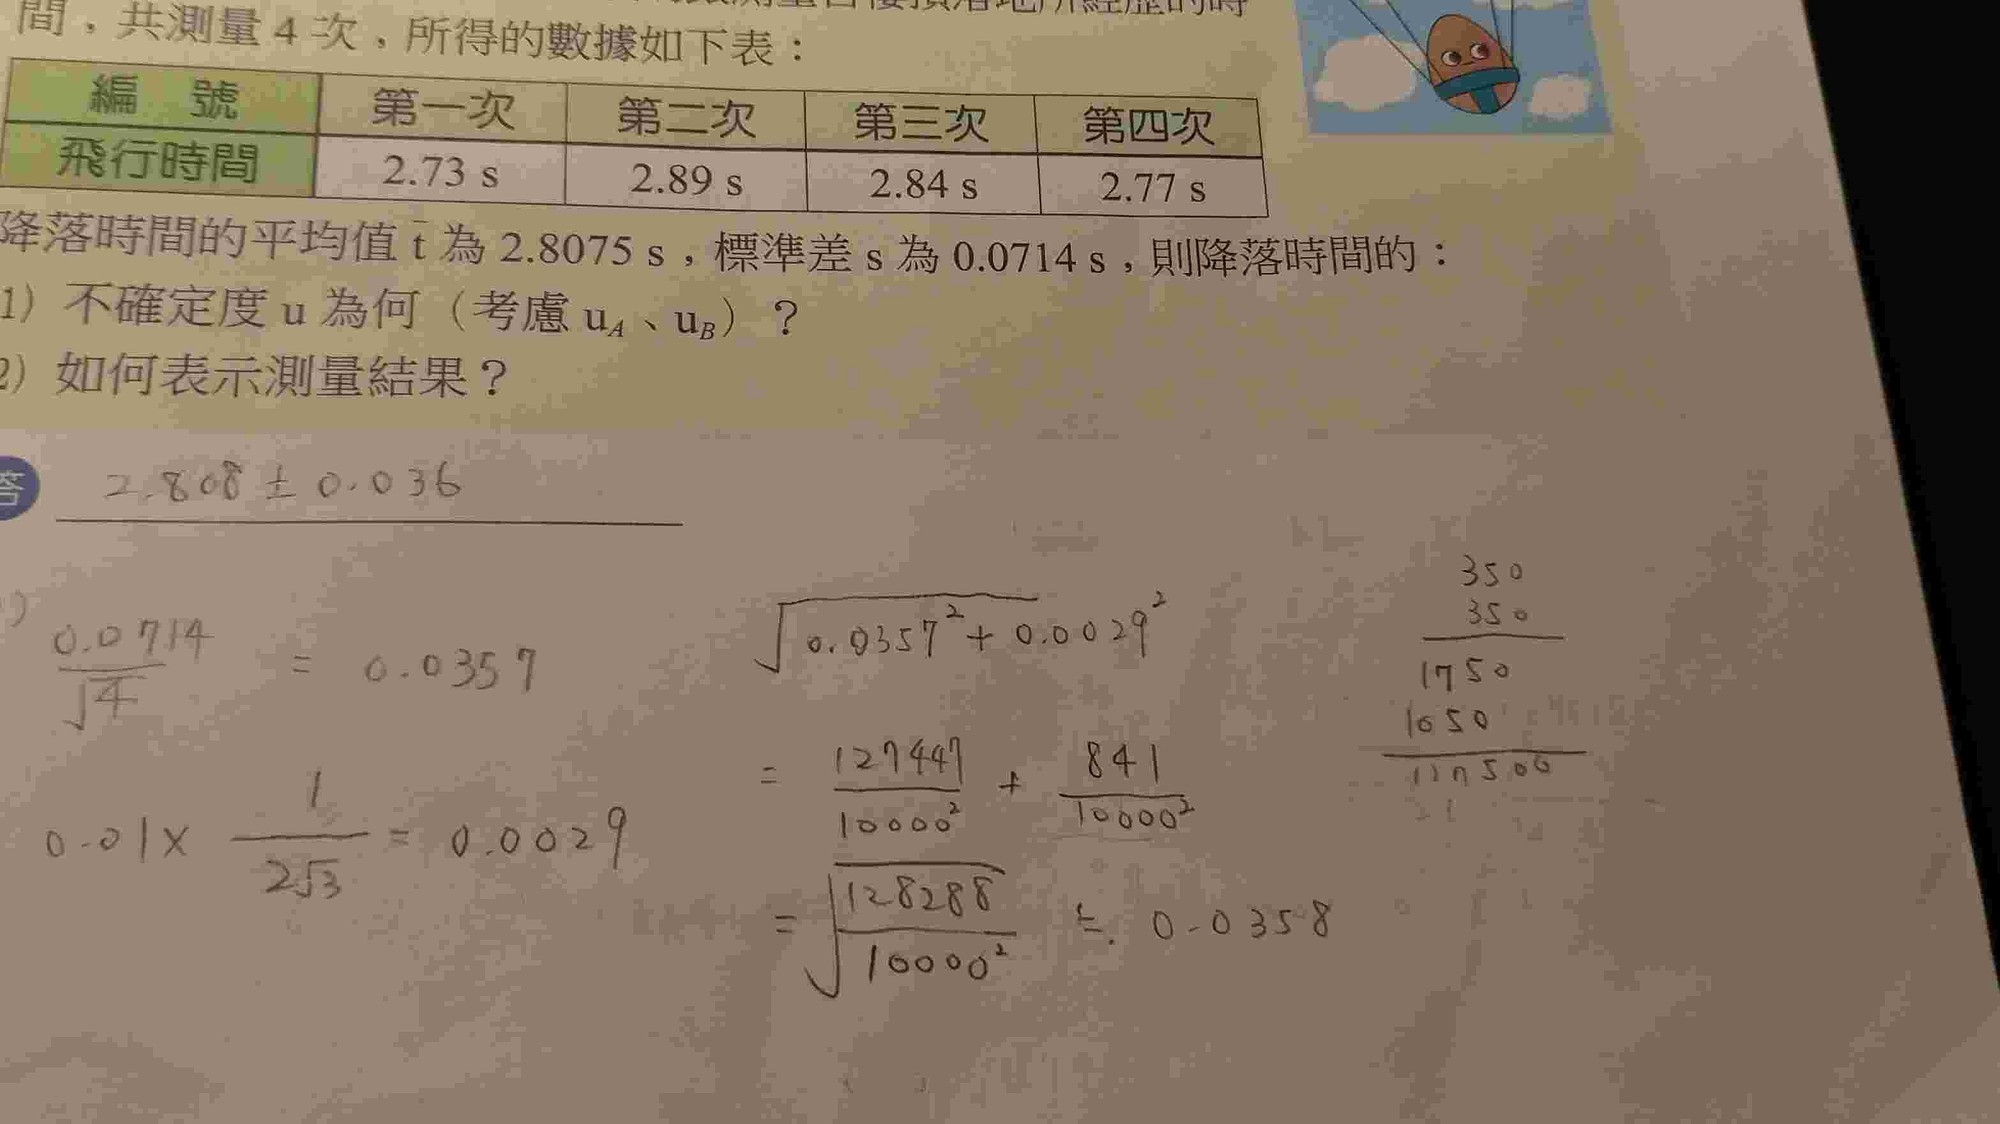 間，共測量4次，所得的數據如下表：
編 號 第一次 第二次 第三次 第四次
飛行時間 2.73 s 2.89 s 2.84 s 2.77 s
降落時間的平均值 t̄ 為 2.8075 s，標準差 s 為 0.0714 s，則降落時間的：
1) 不確定度 u 為何（考慮 u_A、u_B）？
2) 如何表示測量結果？
答 2.808 ± 0.036
0.0714/√4 = 0.0357
0.01× 1/2√3 = 0.0029
√0.0357²+0.0029²
= 127447/10000² + 841/10000²
= √128288/10000² ≒ 0.0358
350
350
1750
1050